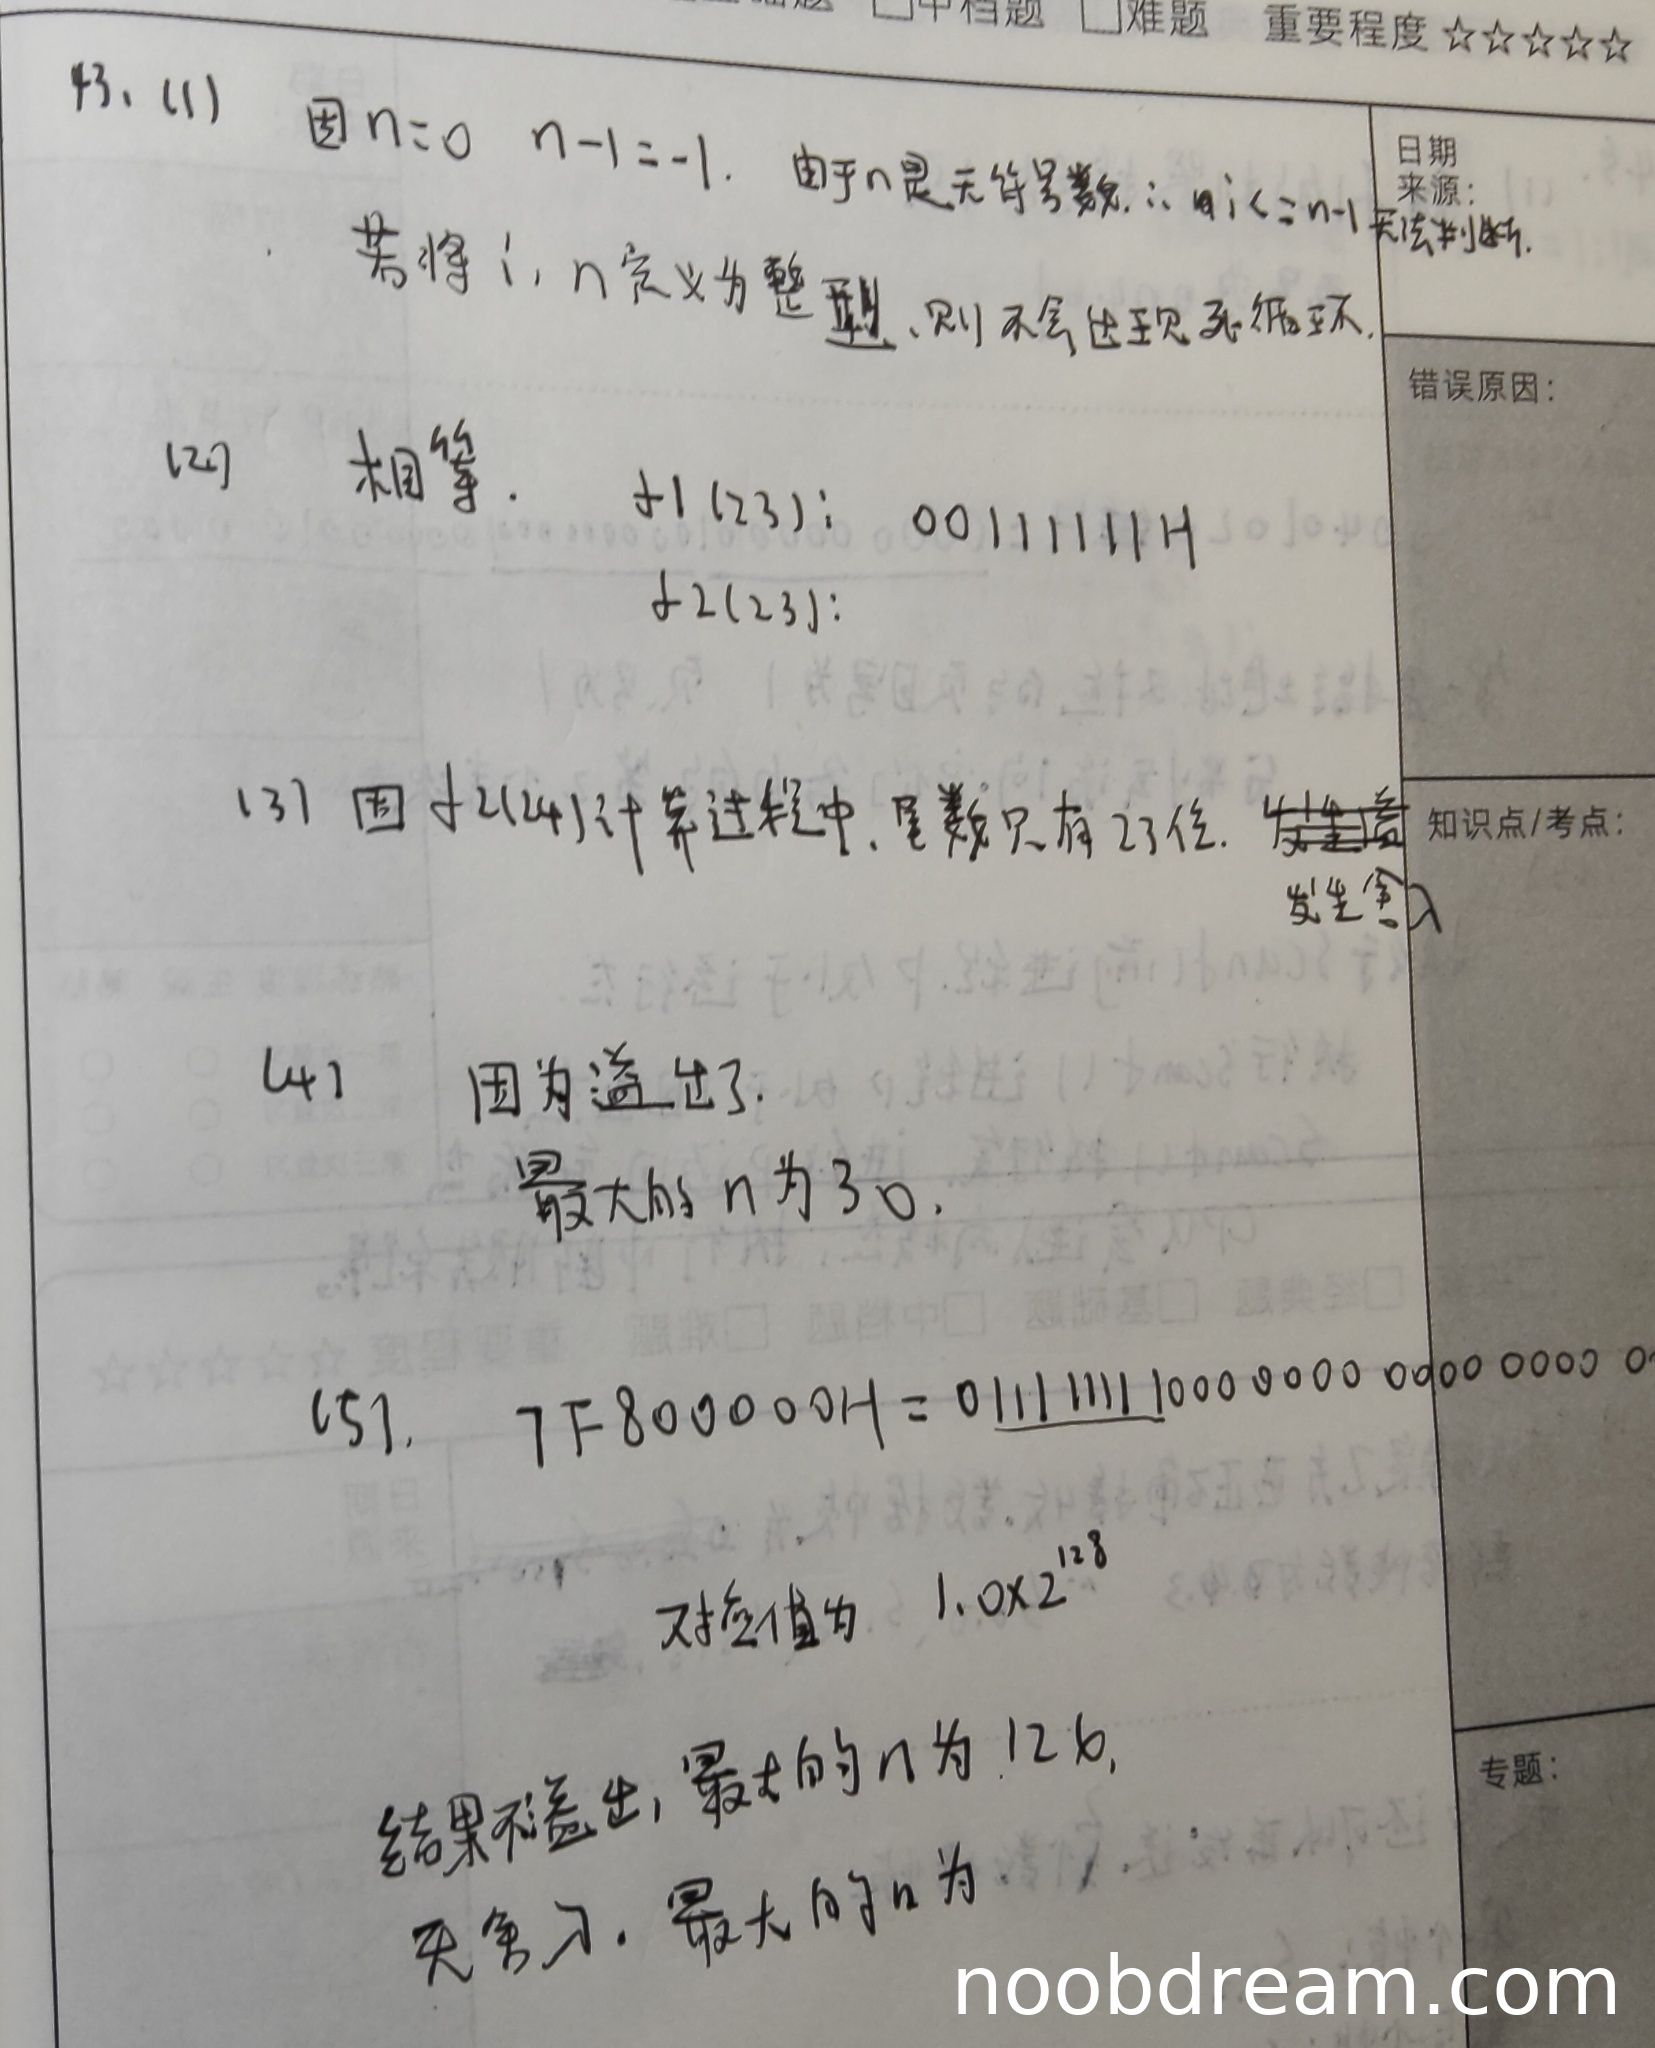 础题 □中档题 □难题 重要程度 ☆☆☆☆☆
43、(1) 因n=0 n-1=-1. 由于n是无符号数, ∴ i<=n-1无法判断.
若将i, n定义为整型、则不会出现死循环.
日期
来源:
错误原因:
(2) 相等. f1(23): 00111111H
f2(23):
(3) 因f2(24)计算过程中、尾数只有23位.
发生舍入
知识点/考点:
(4) 因为溢出了.
最大的n为30.
(5). 7F800000H = 011111111000 0000 0000 0000
对应值为 1.0×2^128
结果不溢出, 最大的n为126,
无舍入. 最大的n为
专题:
noobdream.com